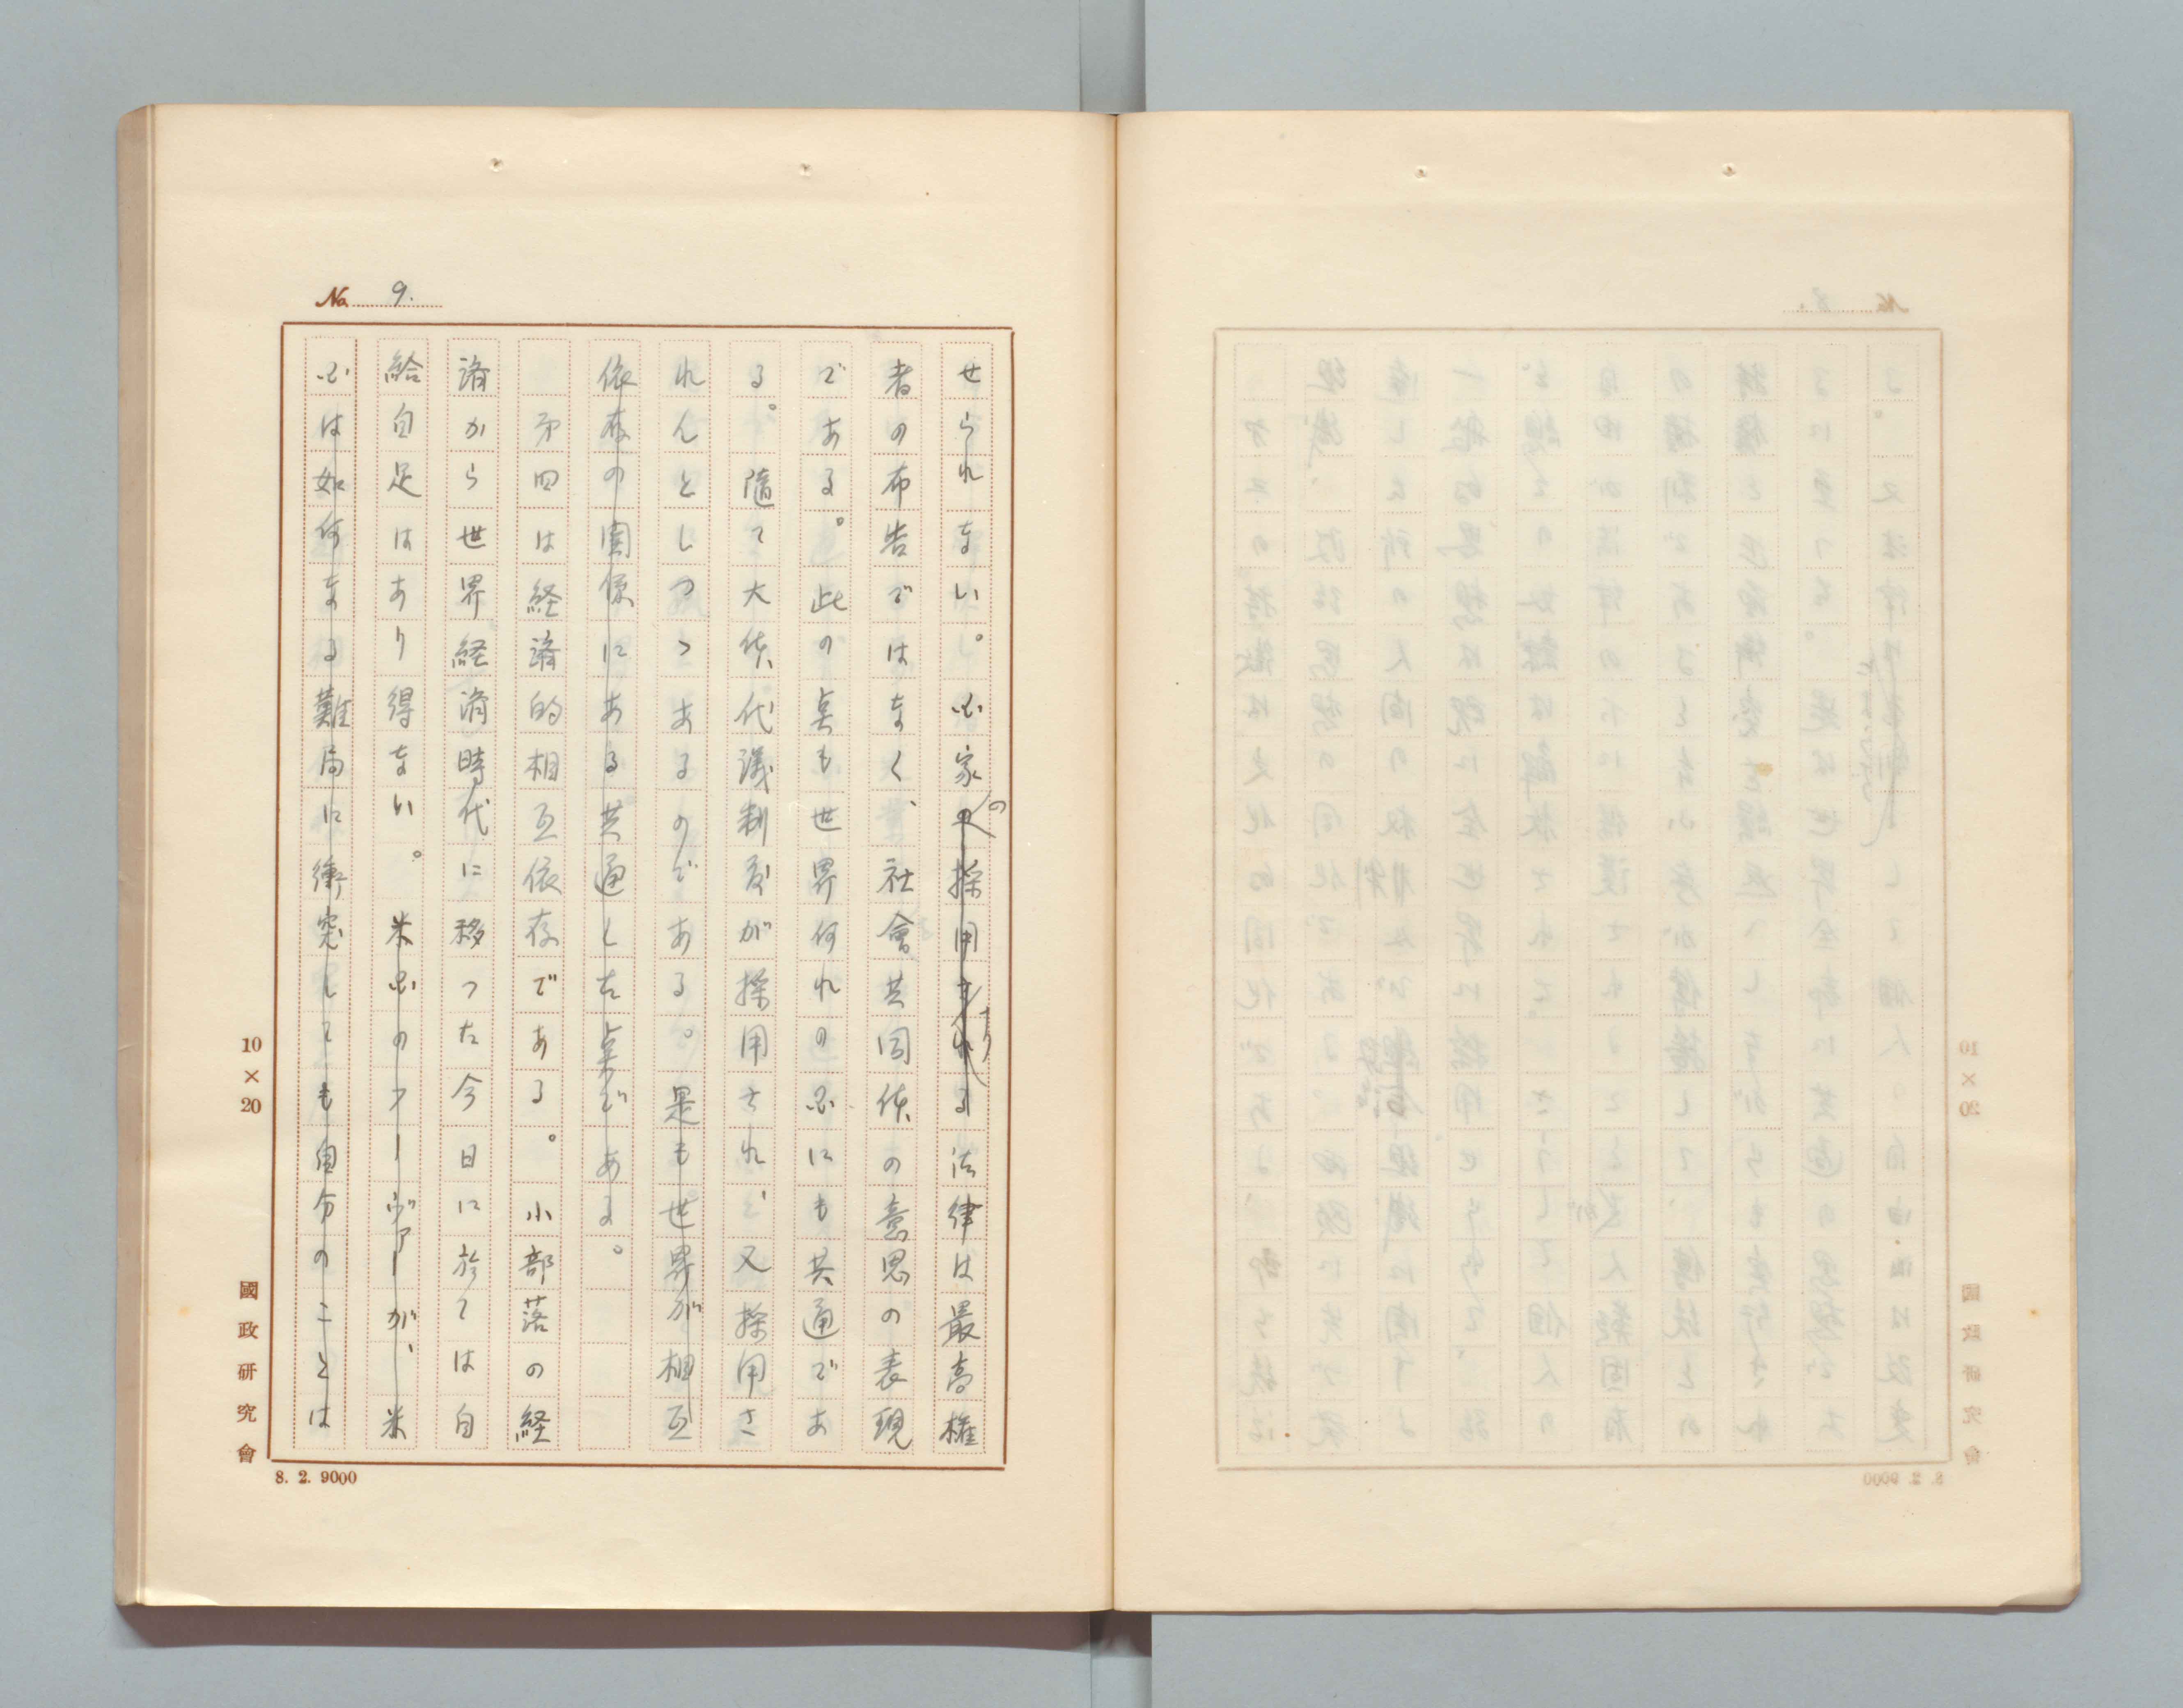 No. 9.
せられない。国家の採用される法律は最高権
者の布告ではなく、社會共同体の意思の表現
である。此の点も世界何れの国にも共通であ
る。隨て大体代議制度が採用され、又採用さ
れんとしつつあるのである。是も世界が相互
依存の関係にある共通した点である。
第四は経済的相互依存である。小部落の経
済から世界経済時代に移つた今日に於ては自
給自足はあり得ない。米国のフーヴァーが、米
国は如何なる難局に衝突しても自分のことは
10×20
國政研究會
8. 2. 9000